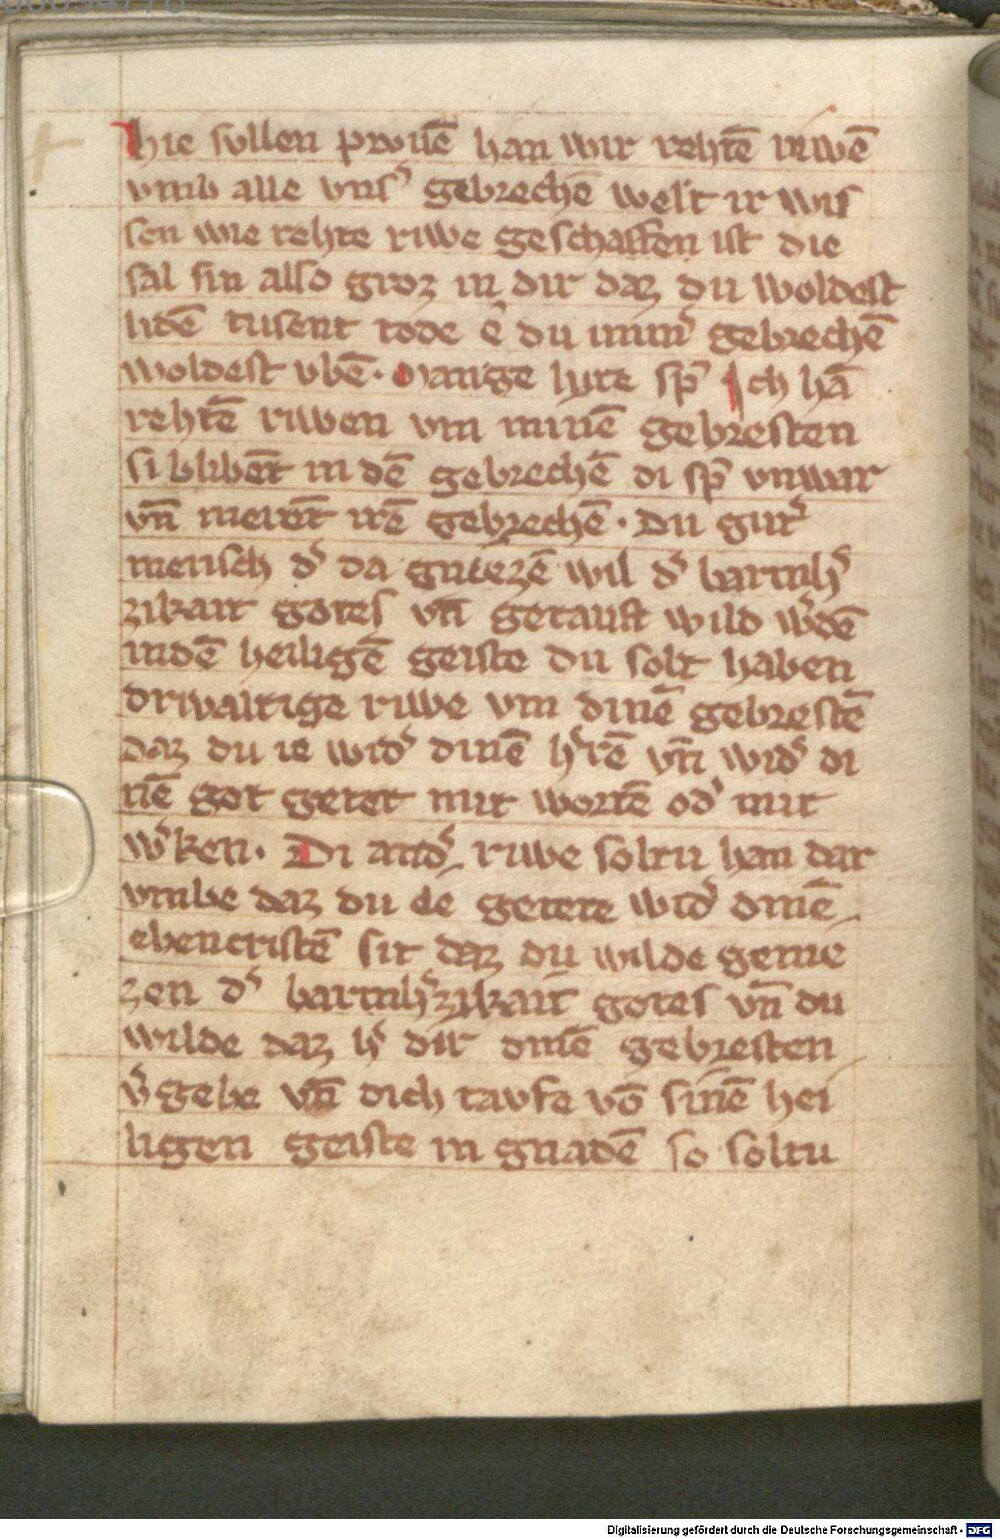 hie sullen pruuē han wir rehtē riwē
vmb alle vns̉ gebrechē welt ir wis
sen wie rehte riwe geschaffen ist die
sal sin also groz in dir daz du woldest
lidē tusent tode ê du imm̉ gebrechē
woldest vbē. Manige lute sp̄ Ich hā
rehtē riwen vm minē gebresten
si blibēt in dē gebrechē di sp̄ vnwar
vn̄ merēt irē gebrechē. Du gut̉
mensch d̉ da gniezē wil d̉ barmh̉
zikait gotes vn̄ getauft wild w̉dē
indē heiligē geiste du solt haben
driualtige riwe vm dinē gebrestē
daz du ie wid̉ dinē h̉rē vn̄ wid̉ di
nē got getet mit wortē od̉ mit
w̉ken. Di and̉ riwe soltu han dar
vmbe daz du ie getete wid̉ dinē
ebencristē sit daz du wilde genie
zen d̉ barmh̉zikait gotes vn̄ du
wilde daz h̉ dir dinē gebresten
v̉gebe vn̄ dich taufe vō sinē hei
ligen geiste in gnadē so soltu
Digitalisierung gefördert durch die Deutsche Forschungsgemeinschaft - DFG